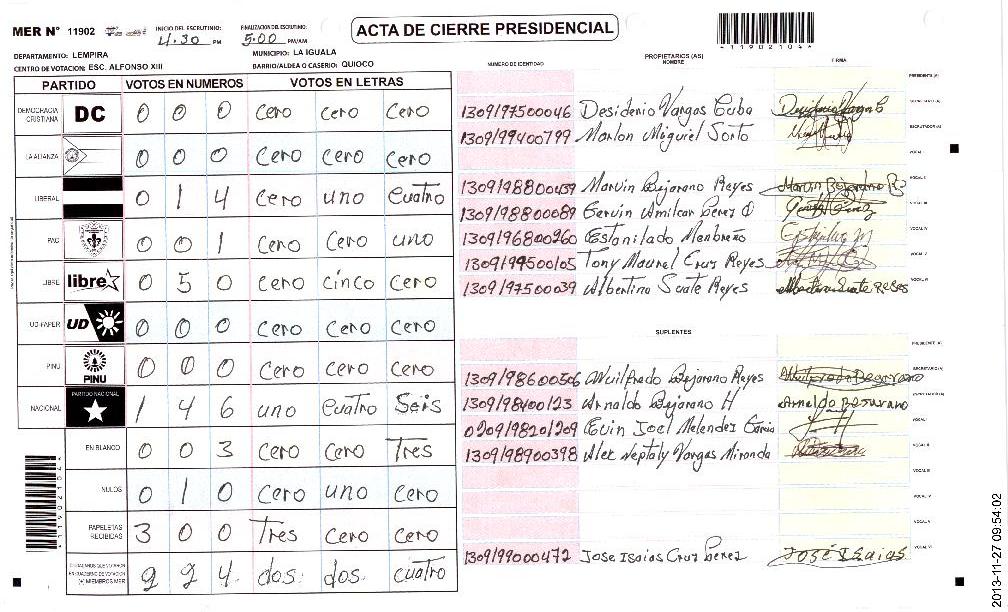 MER N° 11902 INICIO DEL ESCRUTINIO: 4:30 PM FINALIZACION DEL ESCRUTINIO: 5:00 PM/AM ACTA DE CIERRE PRESIDENCIAL
*11902104*
DEPARTAMENTO: LEMPIRA MUNICIPIO: LA IGUALA
CENTRO DE VOTACION: ESC. ALFONSO XIII BARRIO/ALDEA O CASERIO: QUIOCO
PARTIDO VOTOS EN NUMEROS VOTOS EN LETRAS
DEMOCRACIA CRISTIANA DC 0 0 0 Cero Cero Cero
LA ALIANZA 0 0 0 Cero Cero Cero
LIBERAL 0 1 4 Cero uno Cuatro
PAC 0 0 1 Cero Cero uno
LIBRE libre 0 5 0 Cero cinco Cero
UD-FAPER UD 0 0 0 Cero Cero Cero
PINU PINU 0 0 0 Cero Cero Cero
NACIONAL PARTIDO NACIONAL 1 4 6 uno Cuatro Seis
EN BLANCO 0 0 3 Cero Cero Tres
NULOS 0 1 0 Cero uno Cero
PAPELETAS RECIBIDAS 3 0 0 Tres Cero Cero
CIUDADANOS QUE VOTARON EN CUADERNO DE VOTACION (+) MIEMBROS MER 2 2 4 dos dos cuatro
*11902104*
PROPIETARIOS (AS)
NUMERO DE IDENTIDAD NOMBRE FIRMA
PRESIDENTE (A)
1309197500046 Desiderio Vargas Cuba SECRETARIO (A)
1309199400799 Marlon Miguiel Sorto ESCRUTADOR (A)
VOCAL I
1309198800439 Marvin Bejarano Reyes Marvin Bejarano R VOCAL II
1309198800089 Gervin Amilcar Perez VOCAL III
1309196800260 Estanilado Menbreño VOCAL IV
1309199500105 Tony Maurel Cruz Reyes VOCAL V
1309197500039 Albertina Suate Reyes Albertina Suate Reyes VOCAL VI
SUPLENTES
PRESIDENTE (A)
1309198600506 Wuilfredo Bejarano Reyes Wuilfredo Bejarano SECRETARIO (A)
1309198400123 Arnaldo Bejarano H Arnaldo Bejarano ESCRUTADOR (A)
0209198201209 Evin Joel Melendez Garcia VOCAL I
1309198900398 Alex Neptaly Vargas Miranda VOCAL II
VOCAL III
VOCAL IV
VOCAL V
1309199000472 Jose Isaias Cruz Perez José Isaias VOCAL VI
2013-11-27 09:54:02